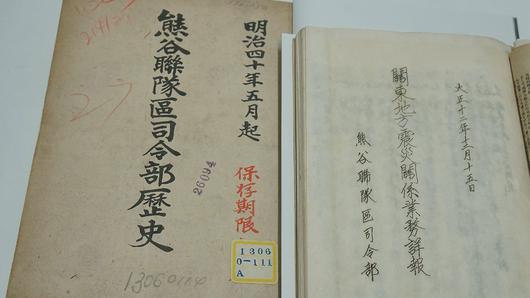 明治四十年五月起
熊谷聯隊區司令部歴史
保存期限
26094
1306
0-111
A
大正十二年十二月十五日
關東地方震災關係業務詳報
熊谷聯隊區司令部